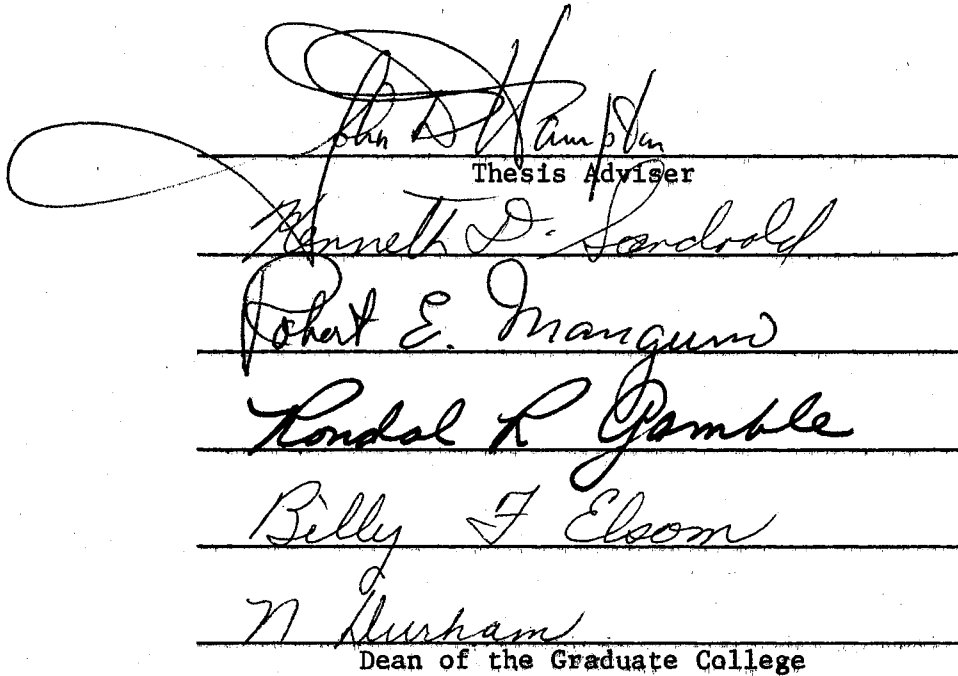 John D Hampton
Thesis Adviser
Kenneth D. Sandvold
Robert E. Mangum
Rondal R Gamble
Billy F Elsom
N Durham
Dean of the Graduate College